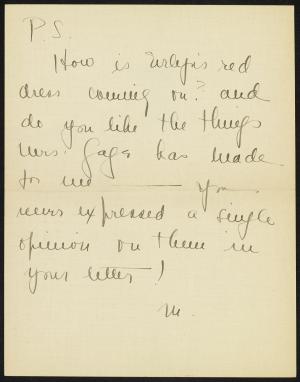 P.S.
How is Evelyn's red
dress coming on? and
do you like the things
Mrs. Gage has made
for me — you
never expressed a single
opinion on them in
your letter!
M.